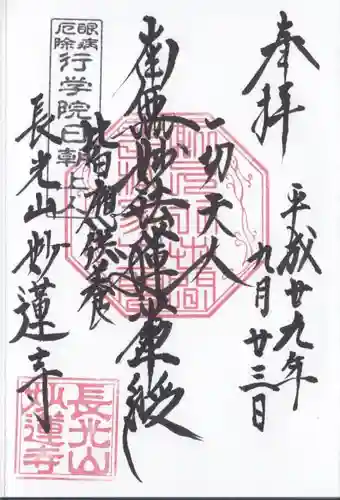 奉拝
平成廿九年
九月廿三日
一切天人
南無妙法蓮華経
皆應供養
眼病
厄除
行学院日朝上人
長光山妙蓮寺
長光山
妙蓮寺